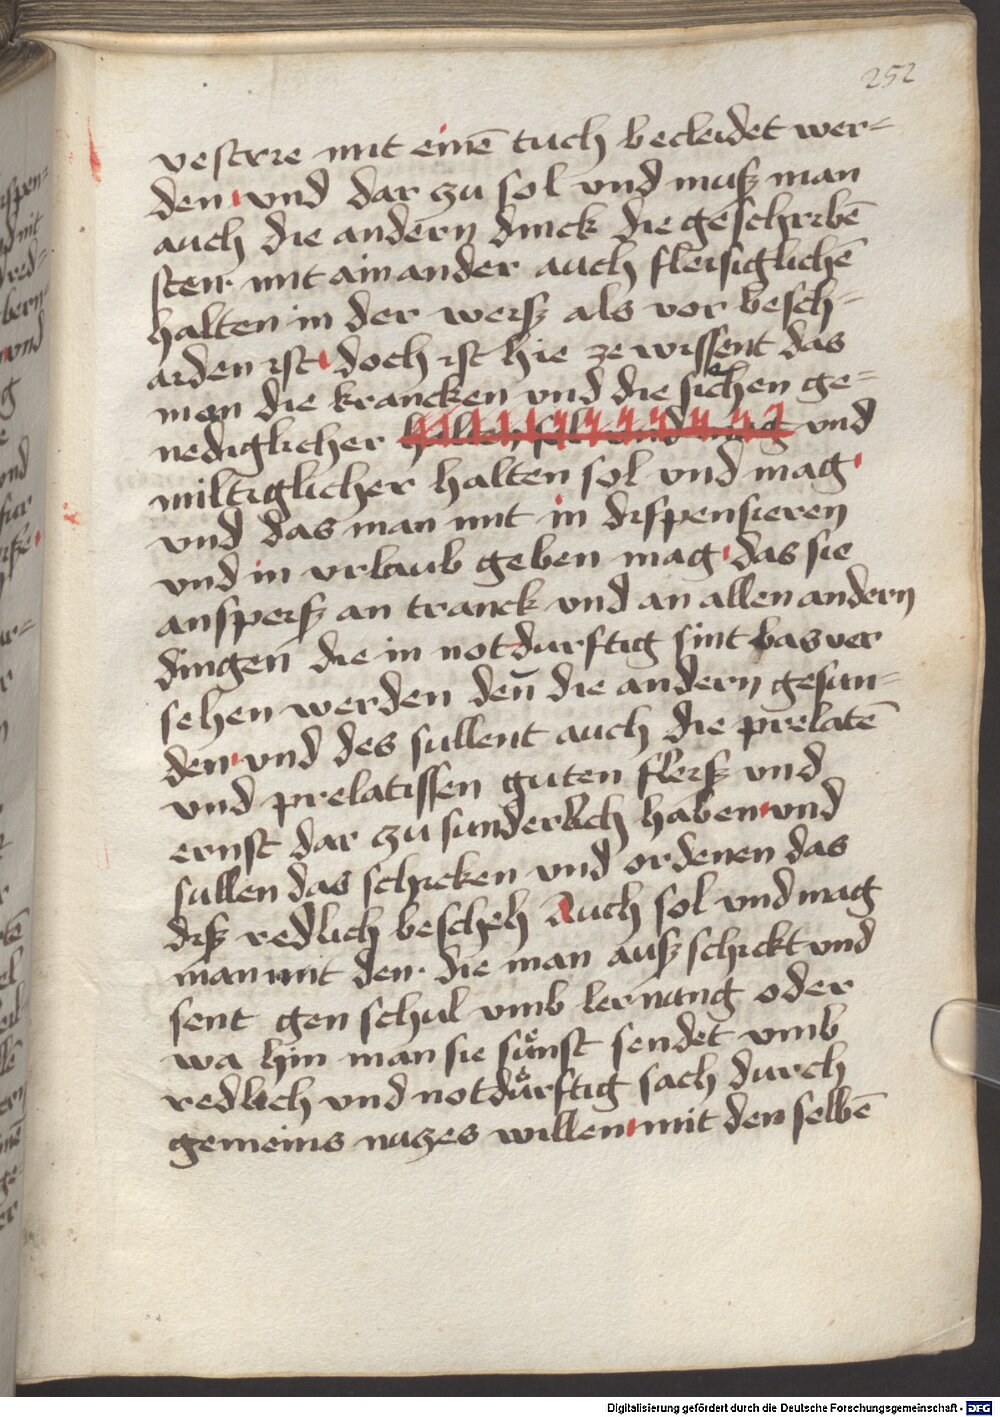 252
vestrre mit einē tuch becleidet wer=
den vnd dar zu sol vnd musz man
auch die andern dinck die geschribē
sten mit ain ander auch fleisiglichē
halten in der weisz als vor besch=
aiden ist doch ist hie ze wissent das
man die krancken vnd die sichen ge=
nediglicher halten sol vnd mag vnd
miltiglicher halten sol vnd mag
vnd das man mit in dispensieren
vnd in vrlaub geben mag das sie
an speisz an tranck vnd an allen andern
dingen die in notdurftig sint bas ver
sehen werden deñ die andern gesun=
den vnd des sullent auch die prelatē
vnd prelatissen guten fleisz vnd
ernst dar zu sunderlich haben vnd
sullen das schicken vnd ordenen das
disz redlich bescheh Auch sol vnd mag
man mit den die man ausz schickt vnd
sent gen schul vmb lernung oder
wa hin man sie sůnst sendet vmb
redlich vnd notdůrftig sach durch
gemeins nuczes willen mit den selbē
Digitalisierung gefördert durch die Deutsche Forschungsgemeinschaft - DFG